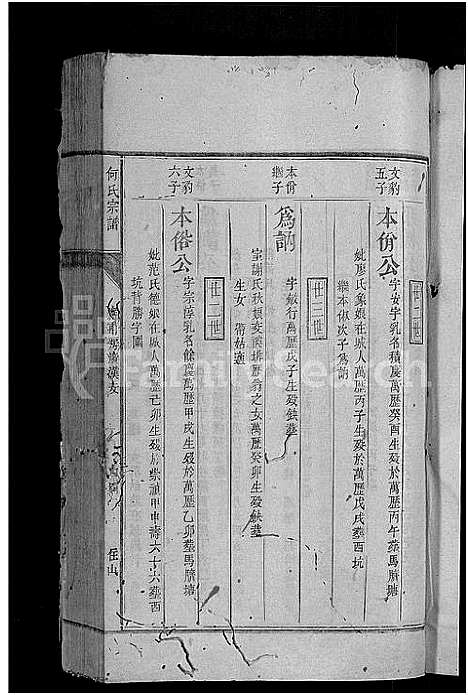 文豹
五子
本佾公
廿二世
字安宇乳名積慶萬歷癸酉生歿於萬歷丙午葬馬臍塘
妣廖氏象娘在城人萬歷丙子生歿於萬歷戊戌葬酉坑
繼本俶次子為訥
本佾
繼子
為訥
廿三世
字敏行萬歷戊子生歿缺葬
室謝氏秋
之女萬歷癸卯生歿缺葬
生女 帶姑適
文豹
六子
本俗公
廿二世
字宗陸乳名餘慶萬歷甲戌生歿於萬歷乙卯葬馬臍塘
妣范氏德娘在城人萬歷己卯生歿於崇禎甲申壽六十六葬酉
坑背勝字圖
何氏宗譜
FamilySearch